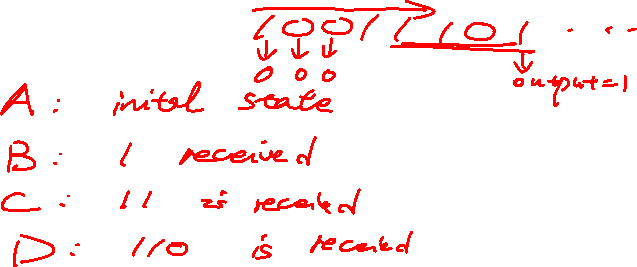 1 0 0 1 1 1 0 1 ...
0 0 0 output=1
A: inital state
B: 1 received
C: 11 is received
D: 110 is received